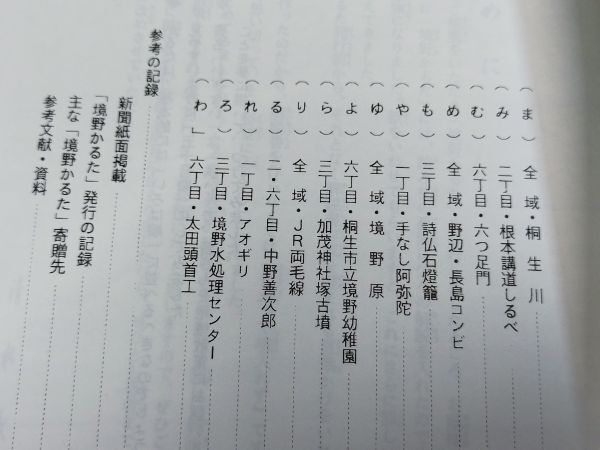 （ま）　全　域・桐　生　川
（み）　二丁目・根本講道しるべ
（む）　六丁目・六つ足門
（め）　全　域・野辺・長島コンビ
（も）　三丁目・詩仏石燈籠
（や）　一丁目・手なし阿弥陀
（ゆ）　全　域・境　野　原
（よ）　六丁目・桐生市立境野幼稚園
（ら）　三丁目・加茂神社塚古墳
（り）　全　域・ＪＲ両毛線
（る）　二・六丁目・中野善次郎
（れ）　一丁目・アオギリ
（ろ）　三丁目・境野水処理センター
（わ」　六丁目・太田頭首工
参考の記録
新聞紙面掲載
「境野かるた」発行の記録
主な「境野かるた」寄贈先
参考文献・資料